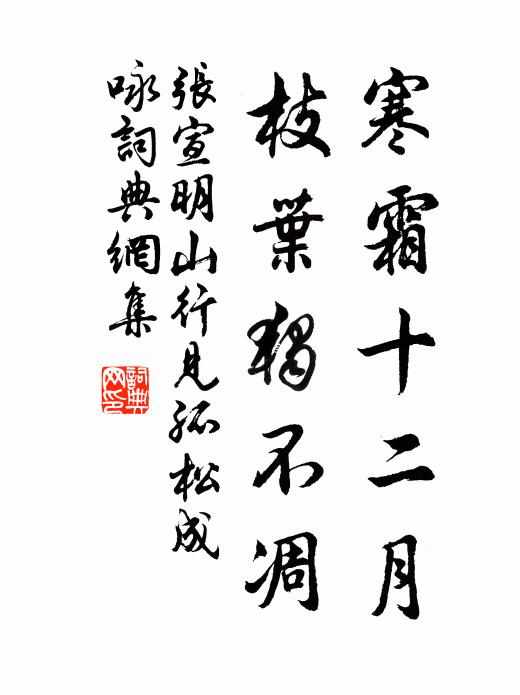 寒霜十二月
枝葉獨不凋
張宣明山行見孤松成
咏詞典網集
詞典网印